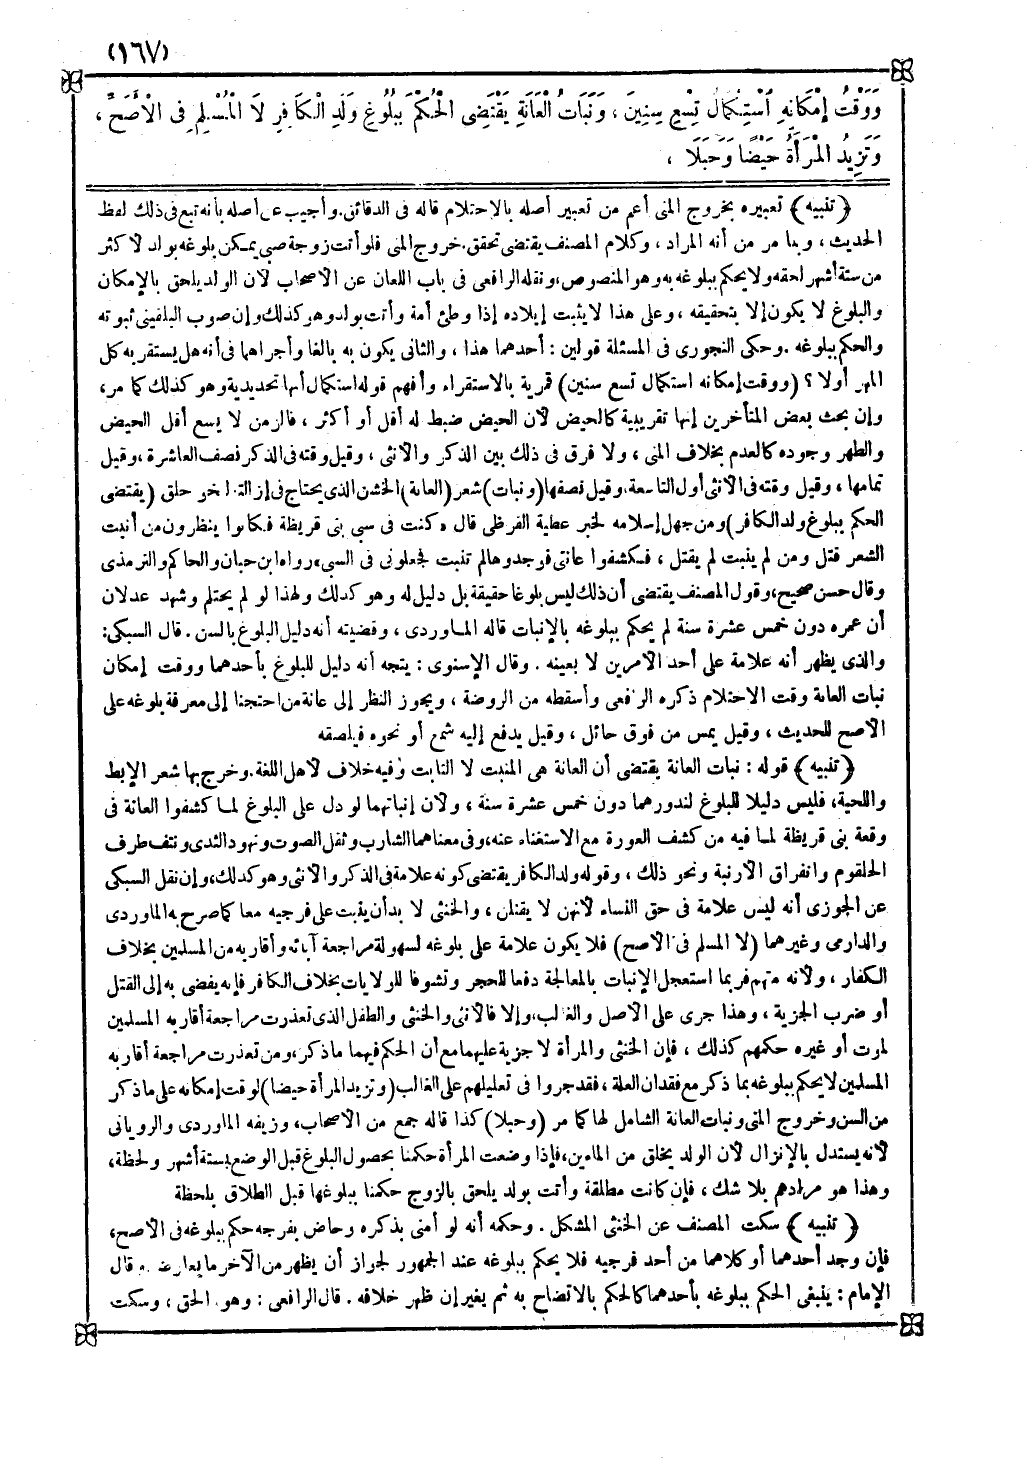 (١٦٧)
وَوَقْتُ إِمْكَانِهِ اسْتِكْمَالُ تِسْعِ سِنِينَ ، وَنَبَاتُ الْعَانَةِ يَقْتَضِى الْحُكْمَ بِبُلُوغِ وَلَدِ الْكَافِرِ لَا الْمُسْلِمِ فِى الْأَصَحِّ ،
وَتَزِيدُ الْمَرْأَةُ حَيْضًا وَحَبَلًا ،
﴿ تنبيه ﴾ تعبيره بخروج المنى أعم من تعبير أصله بالاحتلام قاله فى الدقائق. وأجيب عن أصله بأنه تبع فى ذلك لفظ
الحديث ، وبما مر من أنه المراد ، وكلام المصنف يقتضى تحقق خروج المنى فلو أتت زوجة صبى يمكن بلوغه بولد لأكثر
من ستة أشهر لحقه ولا يحكم ببلوغه به وهو المنصوص، ونقله الرافعى فى باب اللعان عن الأصحاب لأن الولد يلحق بالإمكان
والبلوغ لا يكون إلا بتحقيقه ، وعلى هذا لا يثبت إيلاده إذا وطئ أمة وأتت بولد وهو كذلك وإن صوب البلقينى ثبوته
والحكم ببلوغه . وحكى الجورى فى المسئلة قولين : أحدهما هذا ، والثانى يكون به بالغا وأجراهما فى أنه هل يستقر به كل
المهر أولا ؟ (ووقت إمكانه استكمال تسع سنين) قمرية بالاستقراء وأفهم قوله استكمال أنها تحديدية وهو كذلك كما مر،
وإن بحث بعض المتأخرين إنها تقريبية كالحيض لأن الحيض ضبط له أقل أو أكثر ، فالزمن لا يسع أقل الحيض
والطهر وجوده كالعدم بخلاف المنى ، ولا فرق فى ذلك بين الذكر والأنثى ، وقيل وقته فى الذكر نصف العاشرة ، وقيل
تمامها ، وقيل وقته فى الأنثى أول التاسعة. وقيل نصفها (ونبات) شعر (العانة) الخشن الذى يحتاج فى إزالته لنحو حلق (يقتضى
الحكم ببلوغ ولد الكافر) ومن جهل إسلامه لخبر عطية القرظى قال «كنت فى سبى بنى قريظة فكانوا ينظرون من أنبت
الشعر قتل ومن لم ينبت لم يقتل ، فكشفوا عانتى فوجدوها لم تنبت فجعلونى فى السبى» رواه ابن حبان والحاكم والترمذى
وقال حسن صحيح، وقول المصنف يقتضى أن ذلك ليس بلوغا حقيقة بل دليل له وهو كذلك ولهذا لو لم يحتلم وشهد عدلان
أن عمره دون خمس عشرة سنة لم يحكم ببلوغه بالإنبات قاله الماوردى ، وقضيته أنه دليل البلوغ بالسن . قال السبكى:
والذى يظهر أنه علامة على أحد الأمرين لا بعينه . وقال الإسنوى : يتجه أنه دليل للبلوغ بأحدهما ووقت إمكان
نبات العانة وقت الاحتلام ذكره الرافعى وأسقطه من الروضة ، ويجوز النظر إلى عانة من احتجنا إلى معرفة بلوغه على
الأصح للحديث ، وقيل يمس من فوق حائل ، وقيل يدفع إليه شمع أو نحوه فيلصقه
﴿ تنبيه ﴾ قوله : نبات العانة يقتضى أن العانة هى المنبت لا النابت وفيه خلاف لأهل اللغة. وخرج بها شعر الإبط
واللحية، فليس دليلا للبلوغ لندورهما دون خمس عشرة سنة ، ولأن إنباتهما لو دل على البلوغ لما كشفوا العانة فى
وقعة بنى قريظة لما فيه من كشف العورة مع الاستغناء عنه، وفى معناهما الشارب وثقل الصوت ونهود الثدى ونتف طرف
الحلقوم وانفراق الأرنبة ونحو ذلك ، وقوله ولد الكافر يقتضى كونه علامة فى الذكر والأنثى وهو كذلك، وإن نقل السبكى
عن الجوزى أنه ليس علامة فى حق النساء لأنهن لا يقتلن ، والخنثى لا بد أن ينبت على فرجيه معا كما صرح به الماوردى
والدارمى وغيرهما (لا المسلم فى الأصح) فلا يكون علامة على بلوغه لسهولة مراجعة آبائه وأقاربه من المسلمين بخلاف
الكفار ، ولأنه متهم فربما استعجل الإنبات بالمعالجة دفعا للحجر وتشوفا للولايات بخلاف الكافر فإنه يفضى به إلى القتل
أو ضرب الجزية ، وهذا جرى على الأصل والغالب، وإلا فالأنثى والخنثى والطفل الذى تعذرت مراجعة أقاربه المسلمين
لموت أو غيره حكمهم كذلك ، فإن الخنثى والمرأة لا جزية عليهما مع أن الحكم فيهما ما ذكر، ومن تعذرت مراجعة أقاربه
المسلمين لا يحكم ببلوغه بما ذكر مع فقدان العلة ، فقد جروا فى تعليلهم على الغالب (وتزيد المرأة حيضا) لوقت إمكانه على ما ذكر
من السن وخروج المنى ونبات العانة الشامل لها كما مر (وحبلا) كذا قاله جمع من الأصحاب، وزيفه الماوردى والرويانى
لأنه يستدل بالإنزال لأن الولد يخلق من الماءين، فإذا وضعت المرأة حكمنا بحصول البلوغ قبل الوضع بستة أشهر ولحظة،
وهذا هو مرادهم بلا شك ، فإن كانت مطلقة وأتت بولد يلحق بالزوج حكمنا ببلوغها قبل الطلاق بلحظة
﴿ تنبيه ﴾ سكت المصنف عن الخنثى المشكل . وحكمه أنه لو أمنى بذكره وحاض بفرجه حكم ببلوغه فى الأصح،
فإن وجد أحدهما أو كلاهما من أحد فرجيه فلا يحكم ببلوغه عند الجمهور لجواز أن يظهر من الآخر ما يعارضه. وقال
الإمام : ينبغى الحكم ببلوغه بأحدهما كالحكم بالاتضاح به ثم يغير إن ظهر خلافه . قال الرافعى : وهو الحق ، وسكت